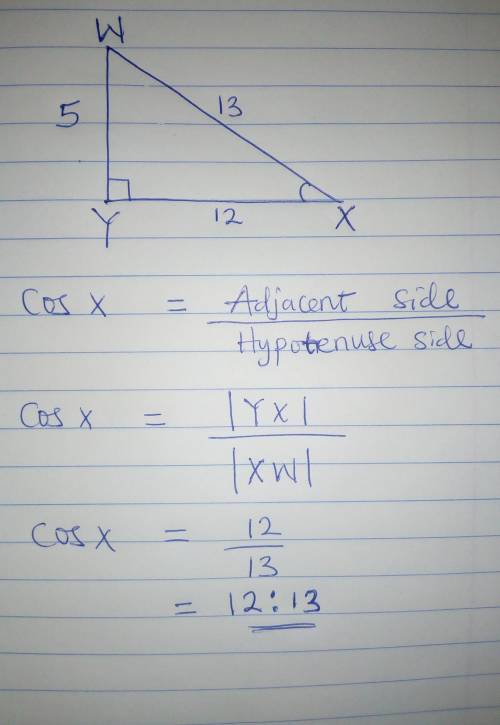 W
5
13
Y
12
X
Cos X = Adjacent side
Hypotenuse side
Cos X = |YX|
|XW|
Cos X = 12
13
= 12:13